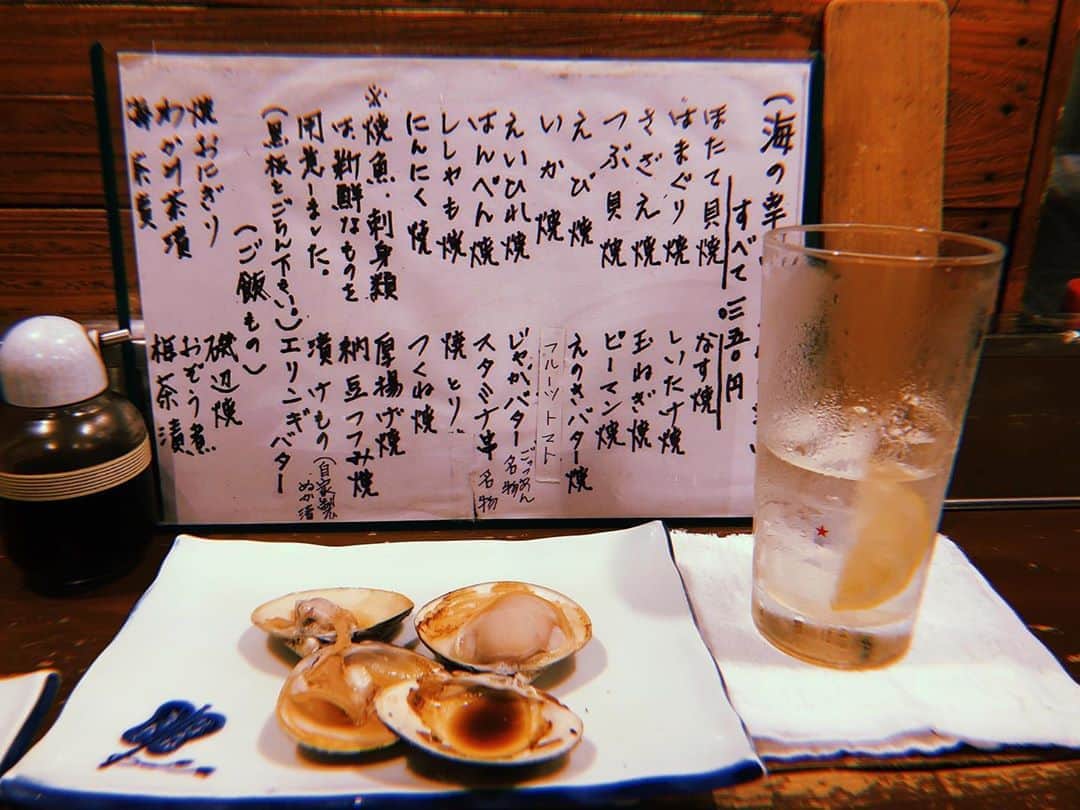 (海の幸
すべて 三五〇円
ほたて貝焼
はまぐり焼
さざえ焼
つぶ貝焼
えび焼
いか焼
えいひれ焼
はんぺん焼
ししゃも焼
にんにく焼
※焼魚、刺身類
は、新鮮なものを
用意しました。
(黒板をごらん下さい。)
なす焼
しいたけ焼
玉ねぎ焼
ピーマン焼
えのきバター焼
フルーツトマト
じゃがバター ごっつぁん名物
スタミナ串 名物
焼とり
つくね焼
厚揚げ焼
納豆つつみ焼
漬けもの(自家製ぬか漬
エリンギバター
(ご飯もの)
焼おにぎり
わかめ茶漬
茶漬
磯辺焼
おぞう煮
梅茶漬